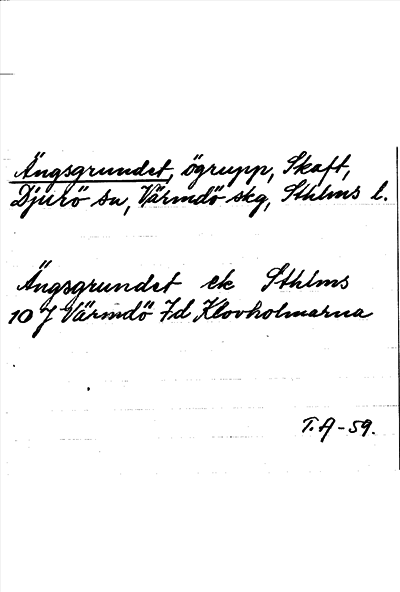 Ängsgrundet, ögrupp, Skaft,
Djurö sn, Värmdö skg, Sthlms l.
Ängsgrundet ek Sthlms
10 J Värmdö 7d Klovholmarna
T.A-59.